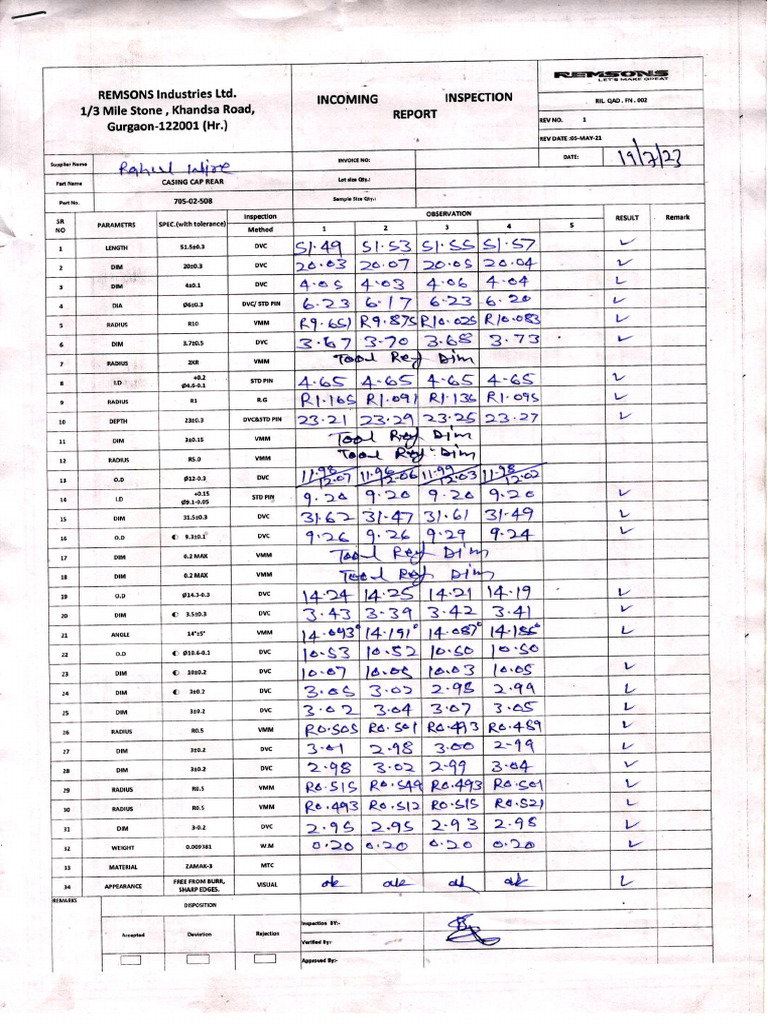 REMSONS Industries Ltd.
1/3 Mile Stone , Khandsa Road,
Gurgaon-122001 (Hr.)
INCOMING INSPECTION
REPORT
REMSONS
LET'S MAKE GREAT
RIL. QAD . FN . 002
REV NO. 1
REV DATE :05-MAY-21
Supplier Name INVOICE NO: DATE: 19/7/23
Part Name CASING CAP REAR Lot size Qty.:
Part No. 705-02-508 Sample Size Qty.:
SR NO PARAMETRS SPEC.(with tolerance) Inspection Method OBSERVATION RESULT Remark
1 2 3 4 5
1 LENGTH 51.5±0.3 DVC 51.49 51.53 51.55 51.57 ✓
2 DIM 20±0.3 DVC 20.03 20.07 20.05 20.04 ✓
3 DIM 4±0.1 DVC 4.05 4.03 4.06 4.04 ✓
4 DIA Ø6±0.3 DVC/ STD PIN 6.23 6.17 6.23 6.20 ✓
5 RADIUS R10 VMM R9.651 R9.875 R10.025 R10.083 ✓
6 DIM 3.7±0.5 DVC 3.67 3.70 3.68 3.73 ✓
7 RADIUS 2XR VMM Tool Ref Dim
8 I.D +0.2 Ø4.6-0.1 STD PIN 4.65 4.65 4.65 4.65 ✓
9 RADIUS R1 R.G R1.165 R1.091 R1.136 R1.095 ✓
10 DEPTH 23±0.3 DVC&STD PIN 23.21 23.29 23.25 23.27 ✓
11 DIM 2±0.15 VMM Tool Ref Dim
12 RADIUS R5.0 VMM Tool Ref Dim
13 O.D Ø12-0.3 DVC 11.98/12.07 11.96/12.06 11.99/12.03 11.98/12.02
14 I.D +0.15 Ø9.1-0.05 STD PIN 9.20 9.20 9.20 9.20 ✓
15 DIM 31.5±0.3 DVC 31.62 31.47 31.61 31.49 ✓
16 O.D 9.3±0.1 DVC 9.26 9.26 9.29 9.24 ✓
17 DIM 0.2 MAX VMM Tool Ref Dim
18 DIM 0.2 MAX VMM Tool Ref Dim
19 O.D Ø14.3-0.3 DVC 14.24 14.25 14.21 14.19 ✓
20 DIM 3.5±0.3 DVC 3.43 3.39 3.42 3.41 ✓
21 ANGLE 14°±5° VMM 14.093° 14.191° 14.087° 14.186° ✓
22 O.D Ø10.6-0.1 DVC 10.53 10.52 10.50 10.50
23 DIM 10±0.2 DVC 10.07 10.05 10.03 10.05 ✓
24 DIM 3±0.2 DVC 3.05 3.02 2.98 2.99 ✓
25 DIM 3±0.2 DVC 3.02 3.04 3.07 3.05 ✓
26 RADIUS R0.5 VMM R0.505 R0.501 R0.493 R0.489 ✓
27 DIM 3±0.2 DVC 3.01 2.98 3.00 2.99 ✓
28 DIM 3±0.2 DVC 2.98 3.02 2.99 3.04 ✓
29 RADIUS R0.5 VMM R0.515 R0.549 R0.493 R0.501 ✓
30 RADIUS R0.5 VMM R0.493 R0.512 R0.515 R0.521 ✓
31 DIM 3-0.2 DVC 2.95 2.95 2.93 2.98 ✓
32 WEIGHT 0.009381 W.M 0.20 0.20 0.20 0.20 ✓
33 MATERIAL ZAMAK-3 MTC
34 APPEARANCE FREE FROM BURR, SHARP EDGES. VISUAL ok ok ok ok ✓
REMARKS DISPOSITION
Inspection BY:-
Accepted Deviation Rejection
Verified By:-
Approved By:-